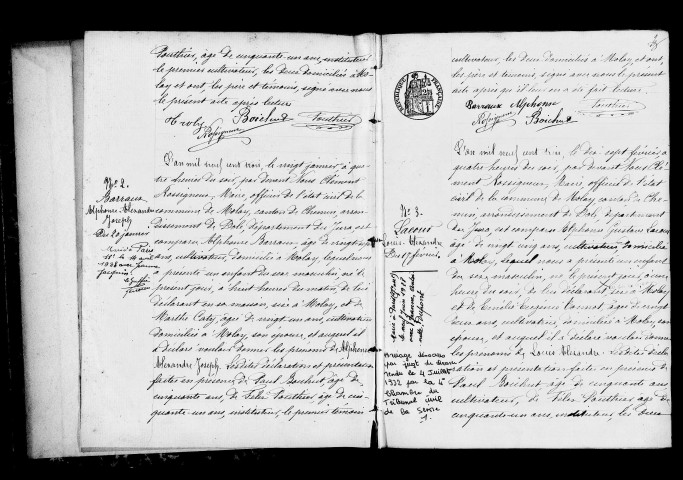 Pouthier, âgé de cinquante un ans, instituteur
le premier cultivateur, les deux domiciliés à Mo-
lay et ont, les père et témoins, signé avec nous le
présent acte après lecture
Boichut Pouthier
Rossigneux
N° 2.
Barraux
Alphonse Alexandre
Joseph
Du 20 janvier
Marié à Paris
L'an mil neuf cent trois, le vingt janvier, à qua-
tre heures du soir, par devant Nous Clément
Rossigneux, Maire, officier de l'état civil de la
commune de Molay, canton de Chemin, arron-
dissement de Dole, département du Jura, est
comparu Alphonse Barraux, âgé de vingt
ans, cultivateur, domicilié à Molay, lequel nous
a présenté un enfant du sexe masculin, né le
présent jour, à huit heures du matin, de lui
déclarant en sa maison, sise à Molay, et de
Marthe Caty, âgée de vingt un ans, cultivatrice
domiciliée à Molay, son épouse, et auquel il
a déclaré vouloir donner les prénoms de Alphonse
Alexandre Joseph. Lesdites déclaration et présentation
faites en présence de Paul Boichut, âgé de
cinquante ans, de Félix Pouthier, âgé de cin-
quante un ans, instituteur, le premier
cultivateur, les deux domiciliés à Molay et ont,
les père et témoins, signé avec nous le présent
acte après qu'il leur en a été fait lecture.
Barraux Alphonse Pouthier
Rossigneux Boichut
RÉPUBLIQUE FRANÇAISE
N° 3.
Lacour
Louis Alexandre
Du 17 février
Mariage dissous
par jugt de divorce
rendu le 4 Juillet
1932 par la 4e
Chambre du
Tribunal civil
de la Seine
L'an mil neuf cent trois, le dix sept février, à
quatre heures du soir, par devant Nous Clé-
ment Rossigneux, Maire, officier de l'état
civil de la commune de Molay, canton de Che-
min, arrondissement de Dole, département
du Jura, est comparu Alphonse Gustave Lacour
âgé de vingt cinq ans, cultivateur, domicilié
à Molay, lequel nous a présenté un enfant
du sexe masculin, né le présent jour, à
heures du soir, de lui déclarant sise à Molay
et de Emilie Eugénie âgée de vingt
ans, cultivatrice, domiciliée à Molay, son
épouse, et auquel il a déclaré vouloir donner
les prénoms de Louis Alexandre. Lesdites décla-
ration et présentation faites en présence de
Paul Boichut, âgé de cinquante ans
cultivateur, de Félix Pouthier, âgé de
cinquante un ans, instituteur, les deux